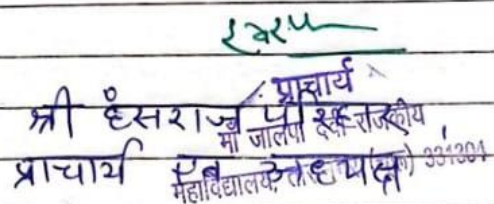 प्राचार्य
श्री हंसराज
मां जालपा देवी राजकीय
प्राचार्य एवं अध्यक्ष
महाविद्यालय, 331304